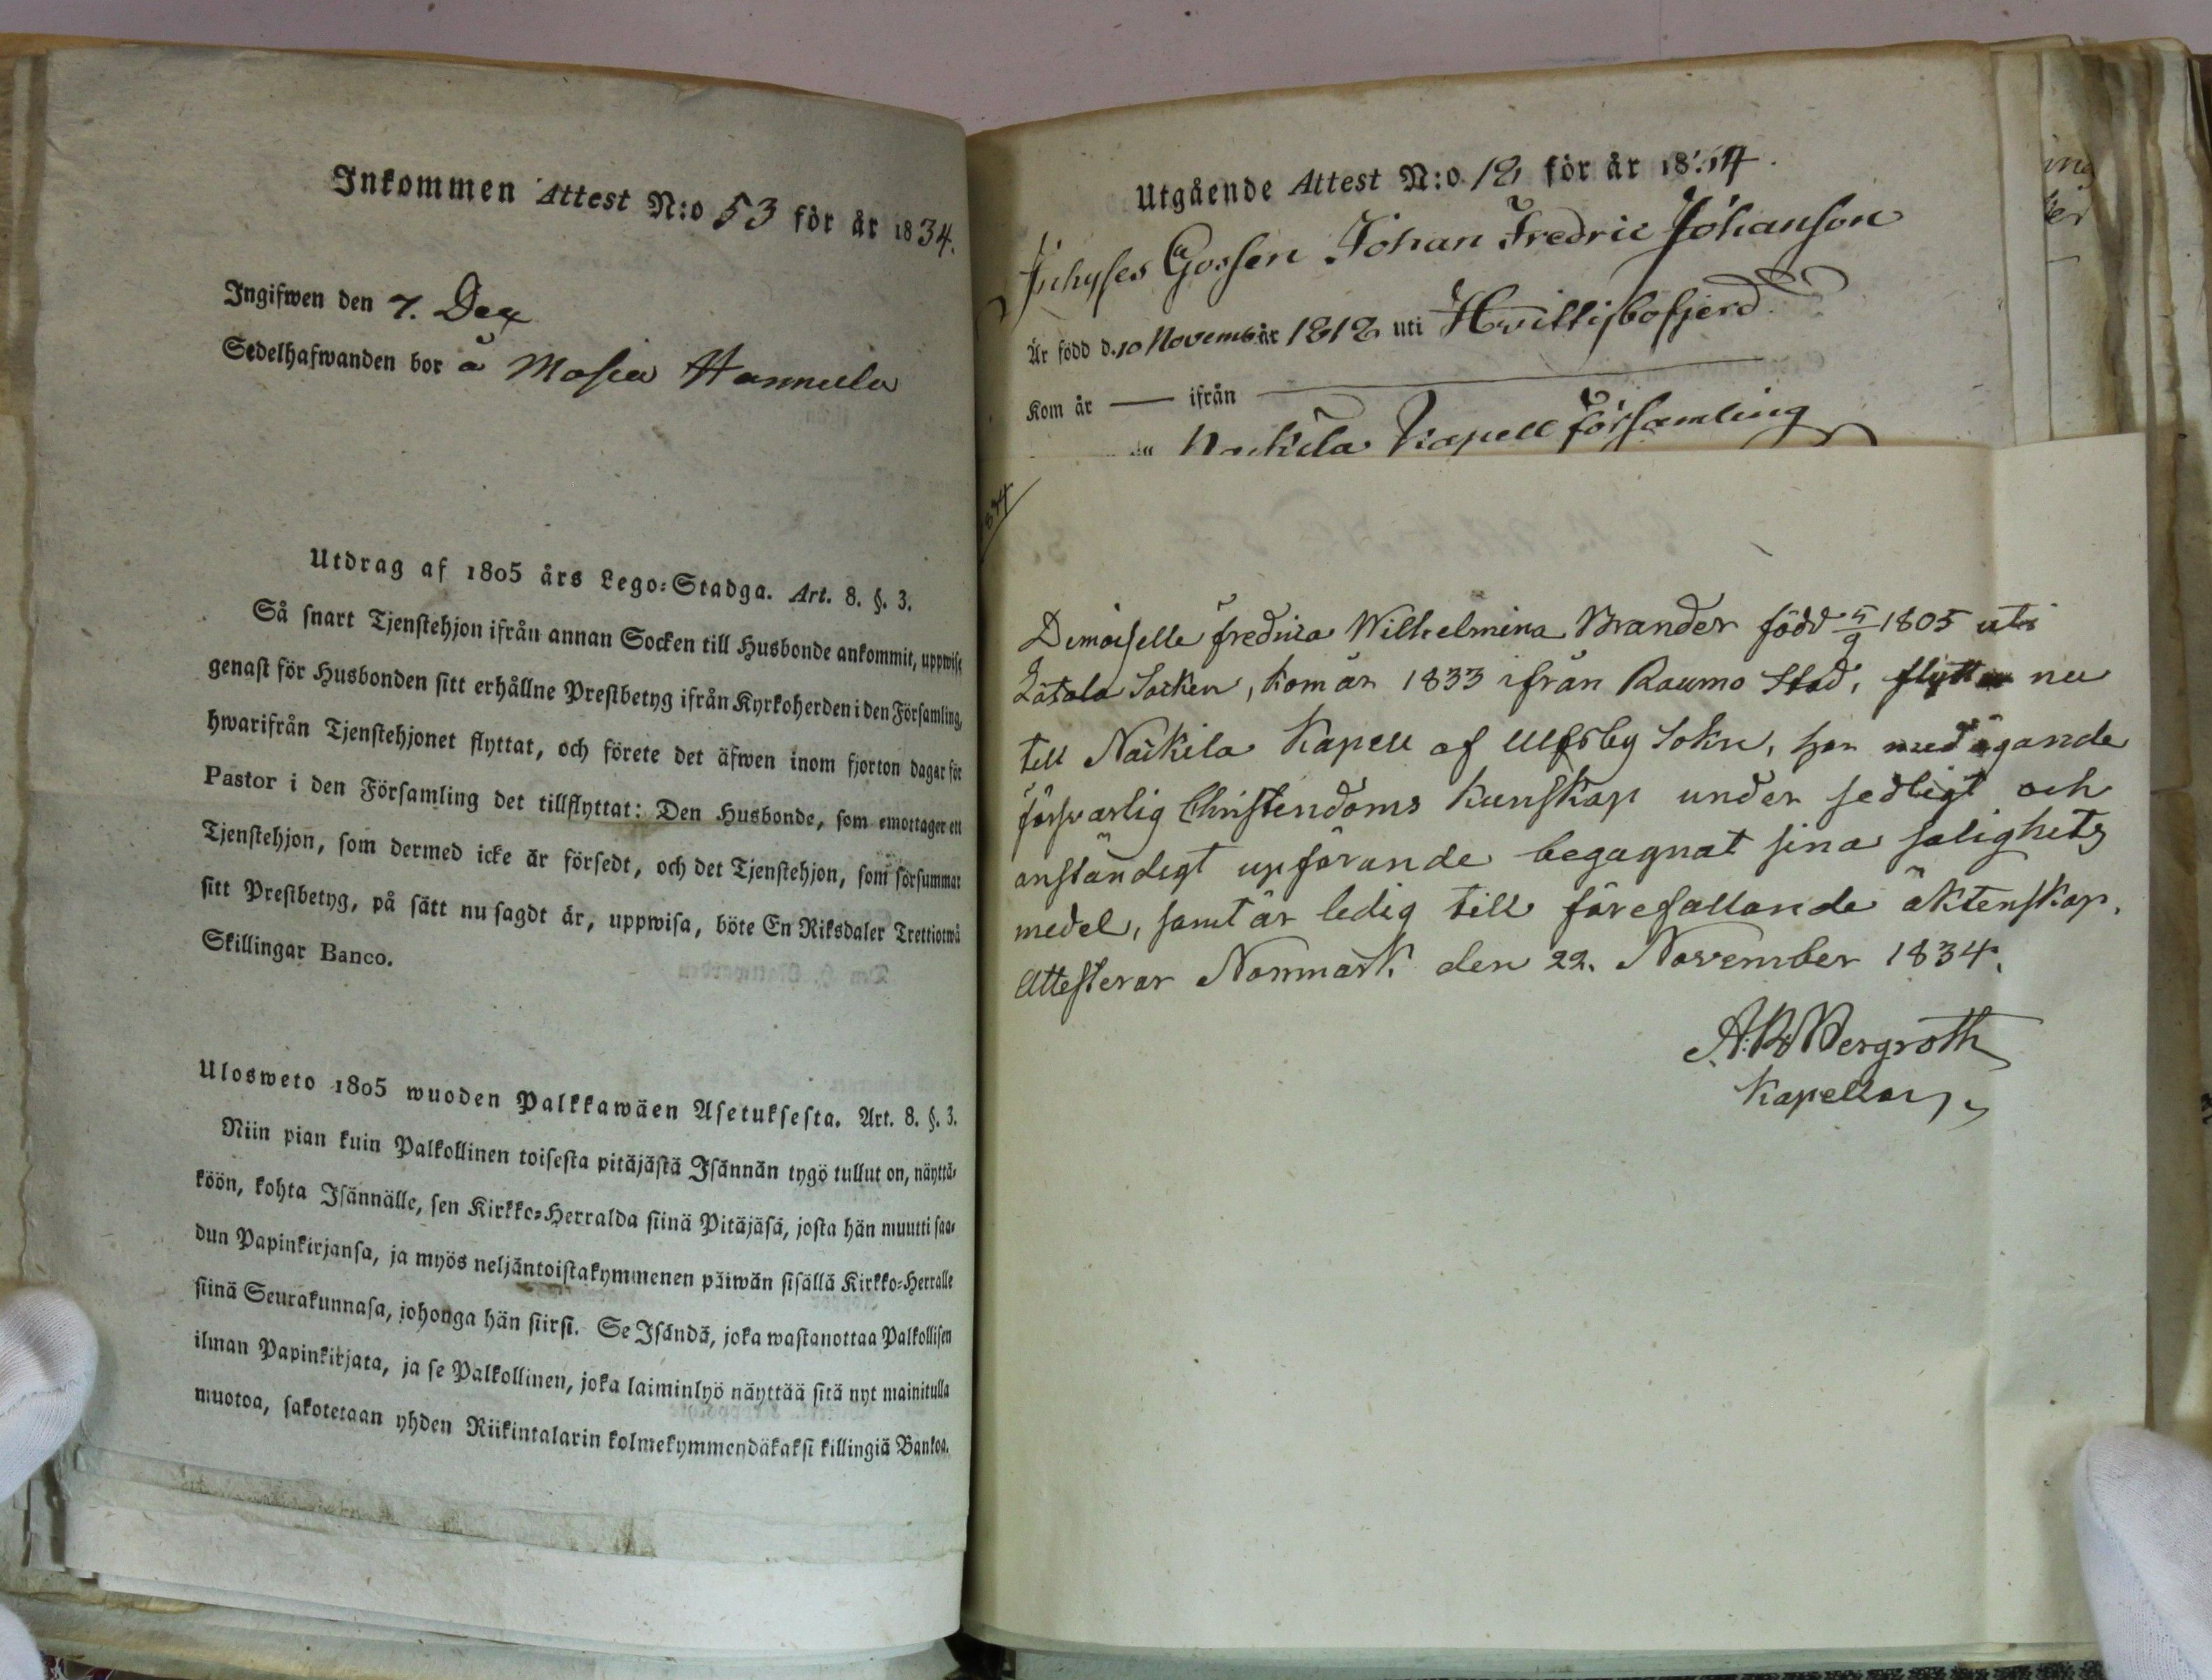 Inkommen Attest N:o 53 för år 1834.
Ingifwen den 7. Dec
Sedelhafwanden bor å Masia Hannula
Utdrag af 1805 års Lego-Stadga. Art. 8. §. 3.
Så snart Tjenstehjon ifrån annan Socken till Husbonde ankommit, uppwise
genast för Husbonden sitt erhållne Prestbetyg ifrån Kyrkoherden i den Församling,
hwarifrån Tjenstehjonet flyttat, och förete det äfwen inom fjorton dagar för
Pastor i den Församling det tillflyttat: Den Husbonde, som emottager ett
Tjenstehjon, som dermed icke är försedt, och det Tjenstehjon, som försummar
sitt Prestbetyg, på sätt nu sagdt är, uppwisa, böte En Riksdaler Trettiotwå
Skillingar Banco.
Ulosweto 1805 wuoden Palkkawäen Asetuksesta. Art. 8. §. 3.
Niin pian kuin Palkollinen toisesta pitäjästä Isännän tygö tullut on, näyttä-
köön, kohta Isännälle, sen Kirkko-Herralda siinä Pitäjäsä, josta hän muutti saa-
dun Papinkirjansa, ja myös neljäntoistakymmenen päiwän sisällä Kirkko-Herralle
siinä Seurakunnasa, johonga hän siirsi. Se Isändä, joka wastanottaa Palkollisen
ilman Papinkirjata, ja se Palkollinen, joka laiminlyö näyttää sitä nyt mainitulla
muotoa, sakotetaan yhden Riikintalarin kolmekymmendäkaksi killingiä Bankoa.
Utgående Attest N:o 12 för år 1834.
Gossen Johan Fredric Johanson
Är född d. 10 Novemb år 1818 uti Hvittisbofjerd
Kom år — ifrån —
Nackila Kapell församling
Demoiselle Fredrica Wilhelmina Brander född 5/9 1805 uti
Socken, kom år 1833 ifrån Raumo Stad, flyttar nu
till Nackila Kapell af Ulfsby Sokn, har medägande
försvarlig Christendoms kunskap under sedligt och
anständigt upförande begagnat sina salighets
medel, samt är ledig till förefallande äktenskap.
Attesterar Norrmark den 22. November 1834.
Bergroth
Kapellan